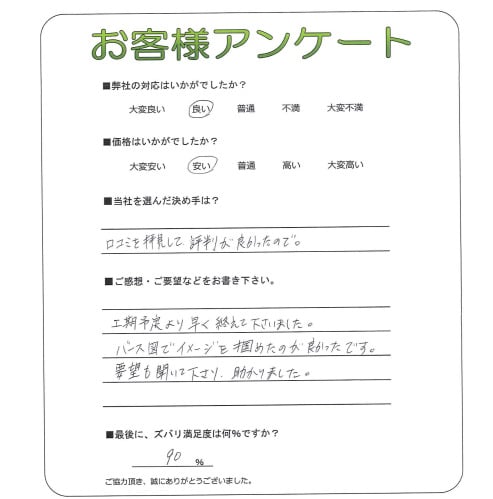 お客様アンケート
■弊社の対応はいかがでしたか？
大変良い 良い 普通 不満 大変不満
■価格はいかがでしたか？
大変安い 安い 普通 高い 大変高い
■当社を選んだ決め手は？
口コミを拝見して評判が良かったので。
■ご感想・ご要望などをお書き下さい。
工期予定より早く終えて下さいました。
パース図でイメージを掴めたのが良かったです。
要望も聞いて下さり、助かりました。
■最後に、ズバリ満足度は何%ですか？
90 %
ご協力頂き、誠にありがとうございました。